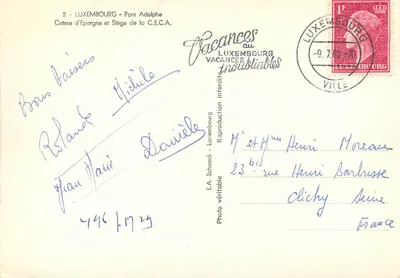 2 - LUXEMBOURG - Parc Adolphe
Caisse d'Epargne et Siège de la C.E.C.A.
Vacances
au
LUXEMBOURG
VACANCES
inoubliables
LUXEMBOURG
VILLE
1F
LUXEMBOURG
Bons baisers
Michèle
Rolande
Jean Marie
Danièle
496/1729
E.A. Schaack - Luxembourg
Photo véritable
Reproduction interdite
Mr et Mme Henri Moreau
23bis rue Henri Barbusse
Clichy Seine
France